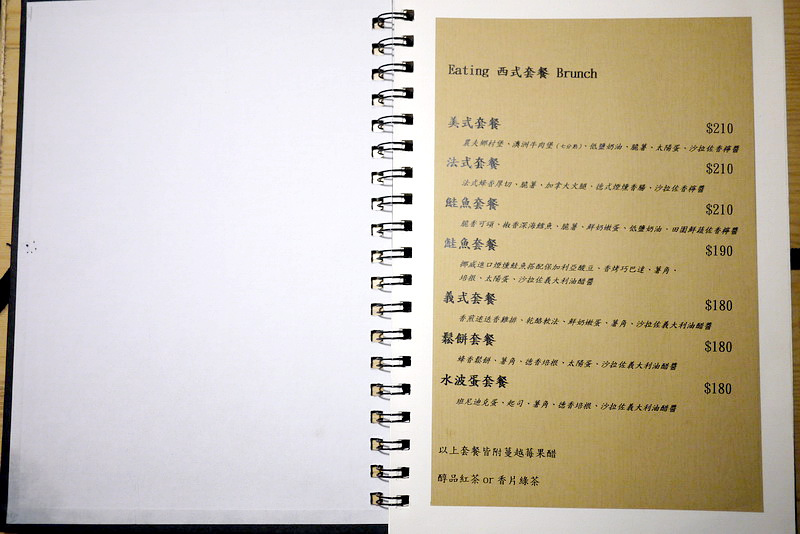 Eating 西式套餐 Brunch
美式套餐 $210
農夫鄉村堡、澳洲牛肉堡(七分熟)、低鹽奶油、脆薯、太陽蛋、沙拉佐香檸醬
法式套餐 $210
法式蜂香厚切、脆薯、加拿大火腿、德式煙燻香腸、沙拉佐香檸醬
鮭魚套餐 $210
脆香可頌、椒香深海鱈魚、脆薯、鮮奶嫩蛋、低鹽奶油、田園鮮蔬佐香檸醬
鮭魚套餐 $190
挪威進口煙燻鮭魚搭配保加利亞酸豆、香烤巧巴達、薯角、
培根、太陽蛋、沙拉佐義大利油醋醬
義式套餐 $180
香煎迷迭香雞排、乾酪軟法、鮮奶嫩蛋、薯角、沙拉佐義大利油醋醬
鬆餅套餐 $180
蜂香鬆餅、薯角、德香培根、太陽蛋、沙拉佐義大利油醋醬
水波蛋套餐 $180
班尼迪克蛋、起司、薯角、德香培根、沙拉佐義大利油醋醬
以上套餐皆附蔓越莓果醋
醇品紅茶 or 香片綠茶